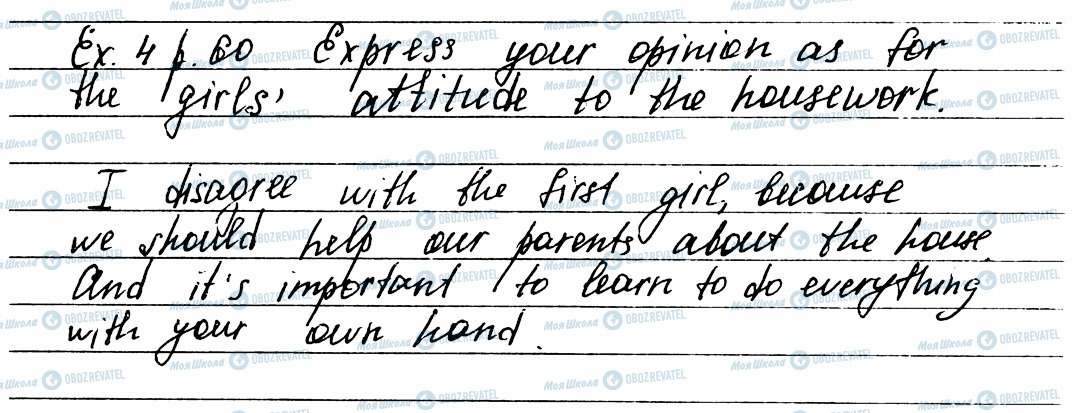 Ex. 4 p. 60 Express your opinion as for
the girls' attitude to the housework.
I disagree with the first girl, because
we should help our parents about the house.
And it's important to learn to do everything
with your own hand.